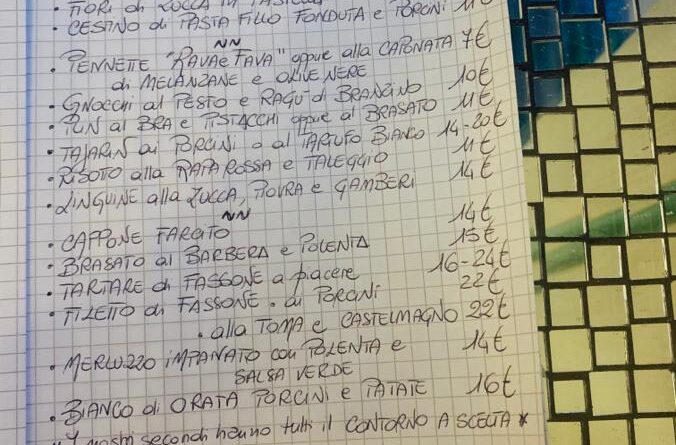 • FIORI di ZUCCA IN PASTELLA
• CESTINO di PASTA FILLO FONDUTA e PORCINI 11€
~~
• PENNETTE "RAVA e FAVA" oppure alla CAPONATA 7€
di MELANZANE e OLIVE NERE
• GNOCCHI al PESTO e RAGÙ di BRANZINO 10€
• PLIN al BRA e PISTACCHI oppure al BRASATO 11€
• TAJARIN ai PORCINI o al TARTUFO BIANCO 14-20€
• RISOTTO alla RAPA ROSSA e TALEGGIO 11€
• LINGUINE alla ZUCCA, PIOVRA e GAMBERI 14€
~~
• CAPPONE FARCITO 14€
• BRASATO al BARBERA e POLENTA 15€
• TARTARE di FASSONE a piacere 16-24€
• FILETTO di FASSONE • ai PORCINI 22€
• alla TOMA e CASTELMAGNO 22€
• MERLUZZO iMPANATO con POLENTA e 14€
SALSA VERDE
• BIANCO di ORATA PORCINI e PATATE 16€
* I nostri secondi hanno tutti il CONTORNO A SCELTA *